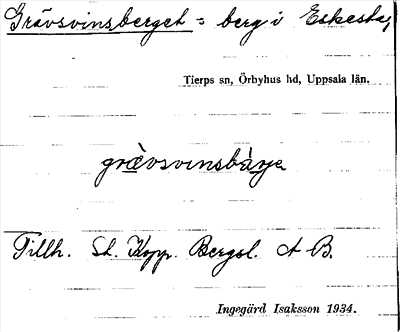 Grävsvinsberget = berg i Eskesta,
Tierps sn, Örbyhus hd, Uppsala län.
grä̀vsvinsbär̀je
Tillh. St. Kopp. Bergsl. A B.
Ingegärd Isaksson 1934.